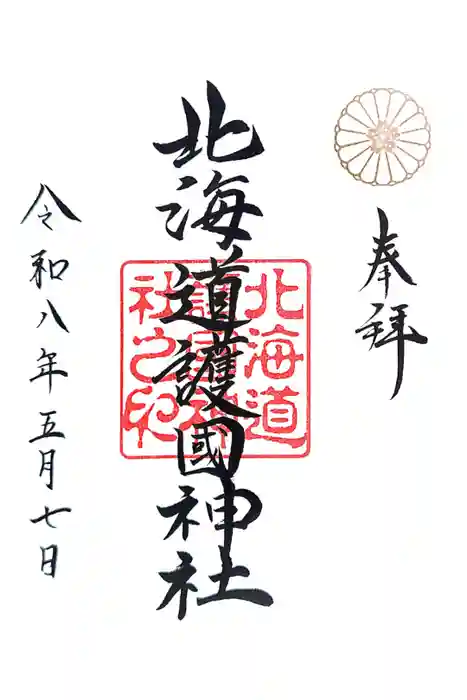 奉拝
北海道護國神社
北海道
護國神
社之印
令和八年五月七日